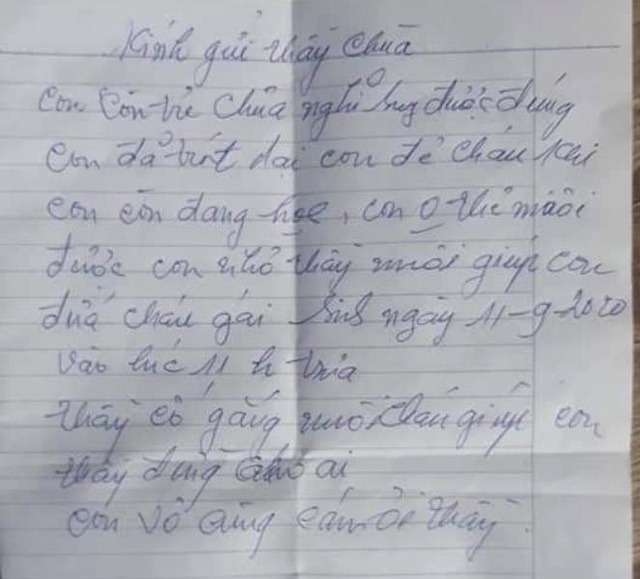 Kính gửi thầy chùa
con còn trẻ chưa nghỉ suy được đúng
con đã trót dại con đẻ cháu khi
con còn đang học, con 0 thể nuôi
được con nhờ thầy nuôi giúp con
đứa cháu gái sinh ngày 11-9-2020
vào lúc 11 h trưa
thầy cố gắng nuôi cháu giúp con
thầy đừng cho ai
con vô cùng cám ơi thầy.